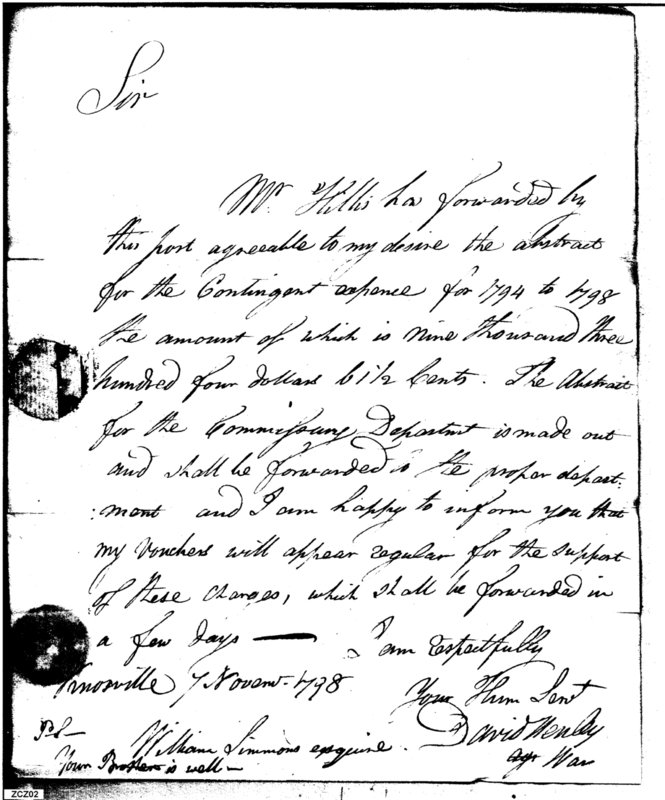 Sir
Mr. Hillis has forwarded by
this post agreeable to my desire the abstract
for the Contingent expence for 1794 to 1798
the amount of which is Nine thousand three
hundred four dollars 61 1/2 Cents. The Abstract
for the Commissary Departmt is made out
and shall be forwarded to the proper depart:
:ment and I am happy to inform you that
my Vouchers will appear regular for the support
of these charges, which shall be forwarded in
a few days — I am respectfully
Knoxville 7 Novem. 1798 Your Hum Servt
David Henley
William Simmons esquire. Agt War
P.S—
Your Brother is well—
ZCZ02